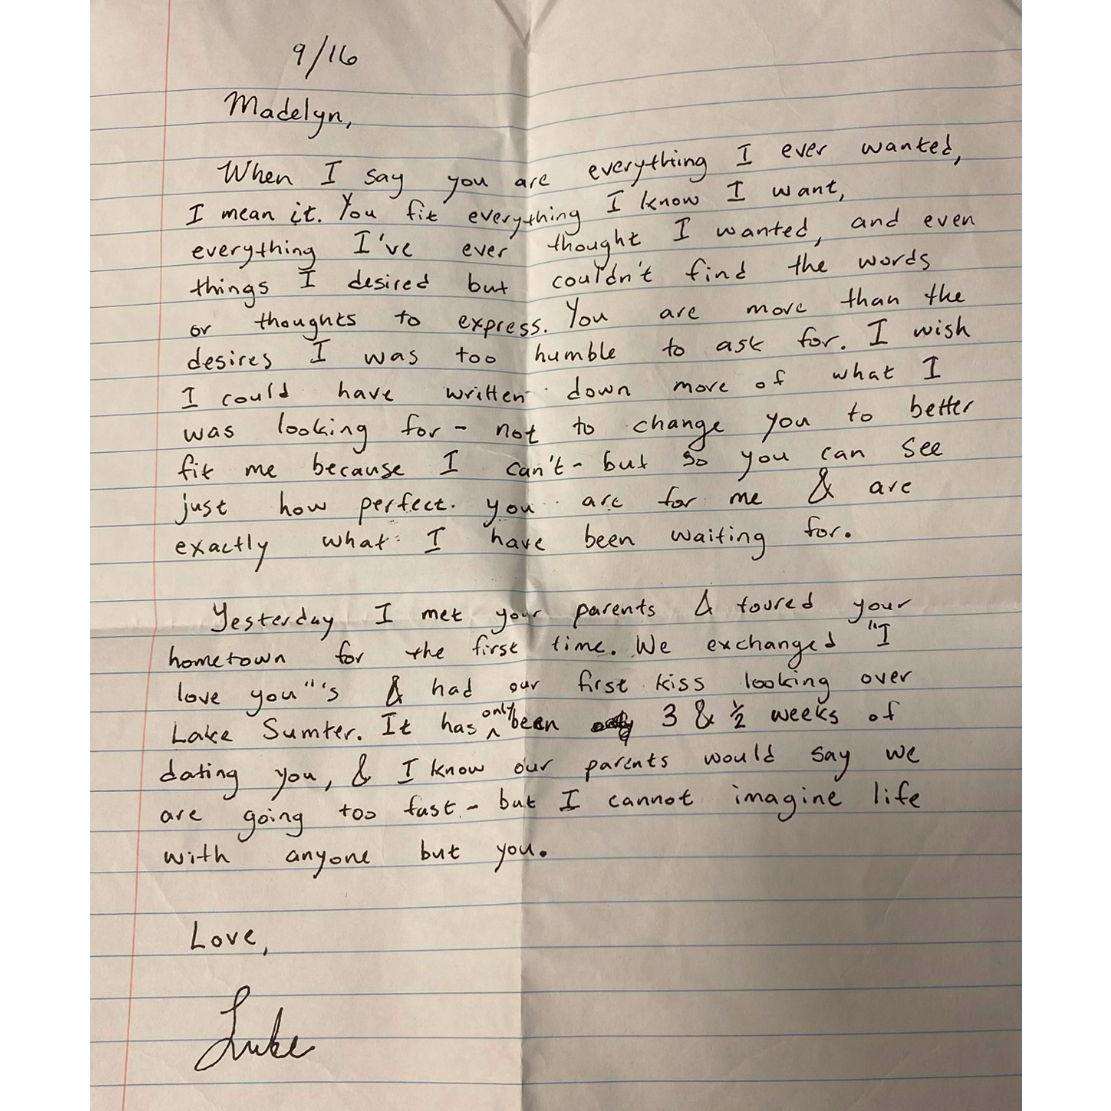 9/16
Madelyn,
When I say you are everything I ever wanted,
I mean it. You fit everything I know I want,
everything I've ever thought I wanted, and even
things I desired but couldn't find the words
or thoughts to express. You are more than the
desires I was too humble to ask for. I wish
I could have written down more of what I
was looking for - not to change you to better
fit me because I can't - but so you can see
just how perfect you are for me & are
exactly what I have been waiting for.
Yesterday I met your parents & toured your
hometown for the first time. We exchanged "I
love you"'s & had our first kiss looking over
Lake Sumter. It has only been 3 & ½ weeks of
dating you, & I know our parents would say we
are going too fast - but I cannot imagine life
with anyone but you.
Love,
Luke